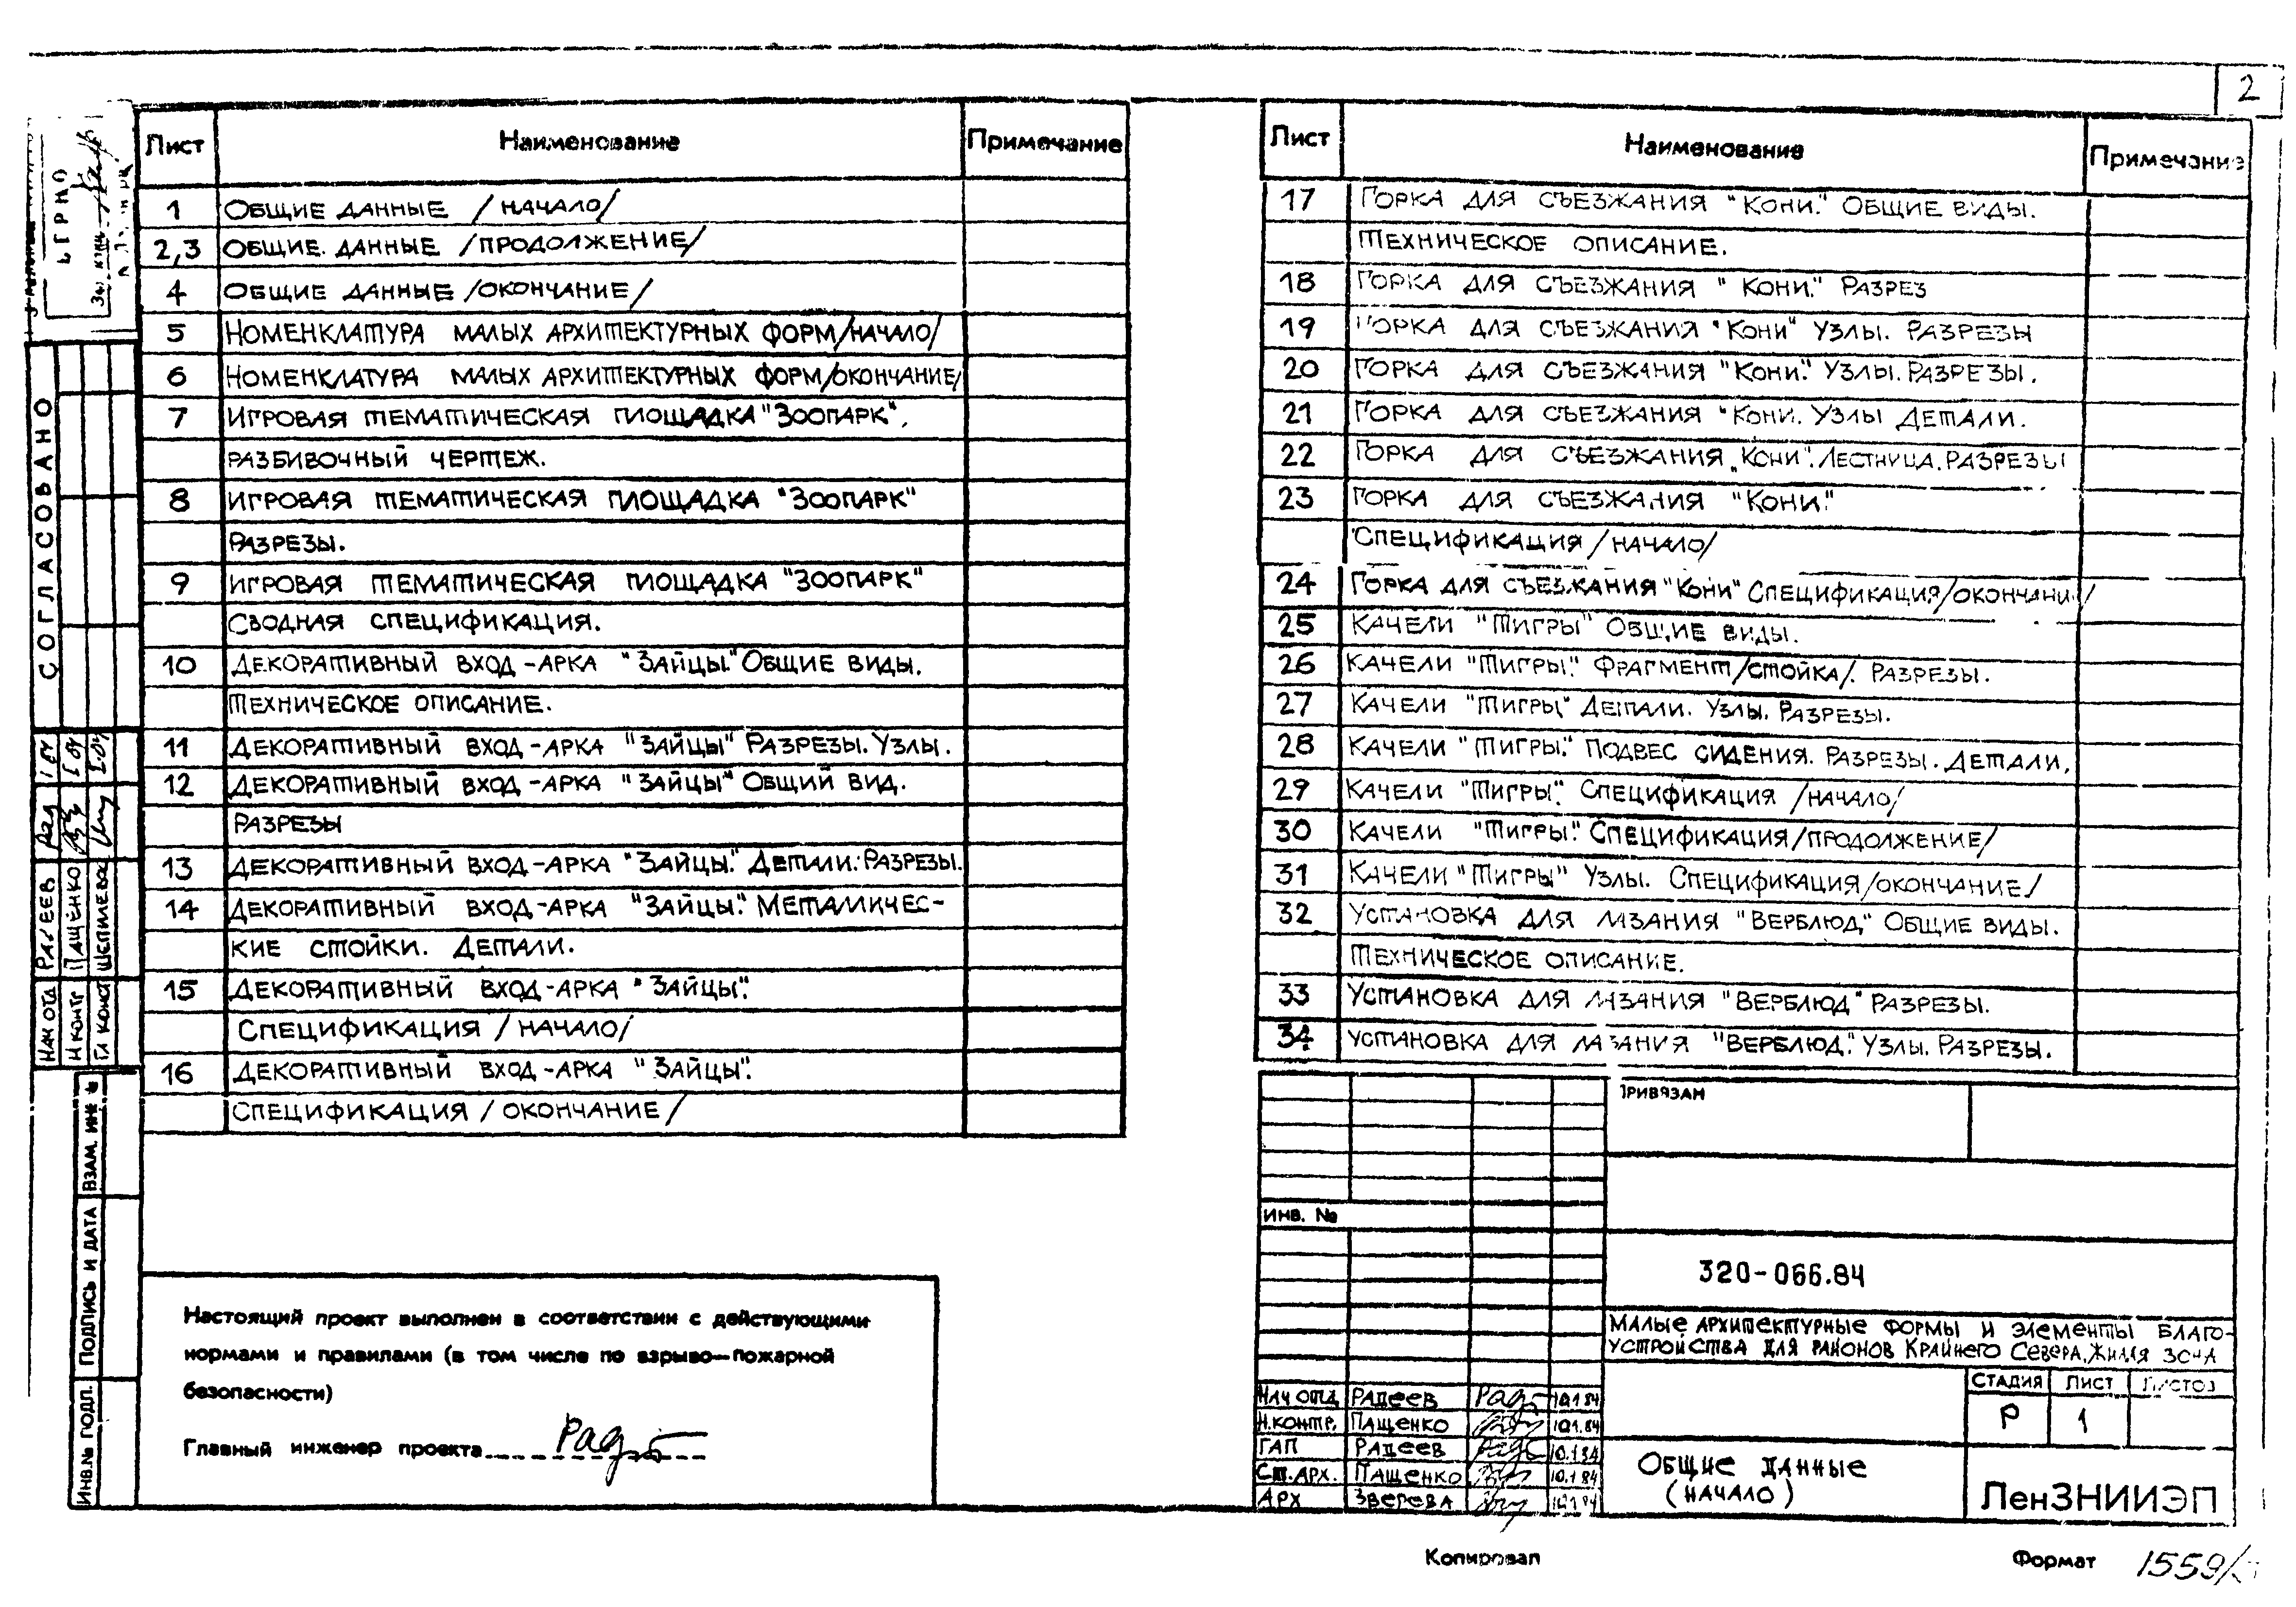 2
Лист Наименование Примечание
1 Общие данные /начало/
2,3 Общие данные /продолжение/
4 Общие данные /окончание/
5 Номенклатура малых архитектурных форм/начало/
6 Номенклатура малых архитектурных форм/окончание/
7 Игровая тематическая площадка "Зоопарк".
разбивочный чертеж.
8 Игровая тематическая площадка "Зоопарк"
Разрезы.
9 Игровая тематическая площадка "Зоопарк"
Сводная спецификация.
10 Декоративный вход-арка "Зайцы." Общие виды.
Техническое описание.
11 Декоративный вход-арка "Зайцы" Разрезы. Узлы.
12 Декоративный вход-арка "Зайцы" Общий вид.
Разрезы
13 Декоративный вход-арка "Зайцы." Детали. Разрезы.
14 Декоративный вход-арка "Зайцы". Металличес-
кие стойки. Детали.
15 Декоративный вход-арка "Зайцы".
Спецификация /начало/
16 Декоративный вход-арка "Зайцы".
Спецификация /окончание/
Лист Наименование Примечание
17 Горка для съезжания "Кони." Общие виды.
Техническое описание.
18 Горка для съезжания "Кони." Разрез
19 Горка для съезжания "Кони" Узлы. Разрезы
20 Горка для съезжания "Кони." Узлы. Разрезы.
21 Горка для съезжания "Кони. Узлы Детали.
22 Горка для съезжания „Кони". Лестница. Разрезы
23 Горка для съезжания "Кони."
Спецификация /начало/
24 Горка для съезжания "Кони" Спецификация/окончание/
25 Качели "Тигры" Общие виды.
26 Качели "Тигры." Фрагмент/стойка/. Разрезы.
27 Качели "Тигры" Детали. Узлы. Разрезы.
28 Качели "Тигры." Подвес сидения. Разрезы. Детали.
29 Качели "Тигры". Спецификация /начало/
30 Качели "Тигры." Спецификация/продолжение/
31 Качели "Тигры" Узлы. Спецификация/окончание/
32 Установка для лазания "Верблюд" Общие виды.
Техническое описание.
33 Установка для лазания "Верблюд" Разрезы.
34 Установка для лазания "Верблюд." Узлы. Разрезы.
Согласовано
Нач отд Рацеев
Н контр Пащенко
Гл конст
Взам. инв №
Подпись и дата
Инв.№ подл.
Настоящий проект выполнен в соответствии с действующими
нормами и правилами (в том числе по взрыво-пожарной
безопасности)
Главный инженер проекта
Привязан
Инв. №
320-066.84
Малые архитектурные формы и элементы благо-
устройства для районов Крайнего Севера. Жилая зона
Стадия Лист Листов
Р 1
Нач отд Рацеев 10.1.84
Н.контр. Пащенко 10.1.84
ГАП Рацеев 10.1.84
Ст.арх. Пащенко 10.1.84
Арх Зверева 10.1.84
Общие данные
(начало)
ЛенЗНИИЭП
Копировал Формат